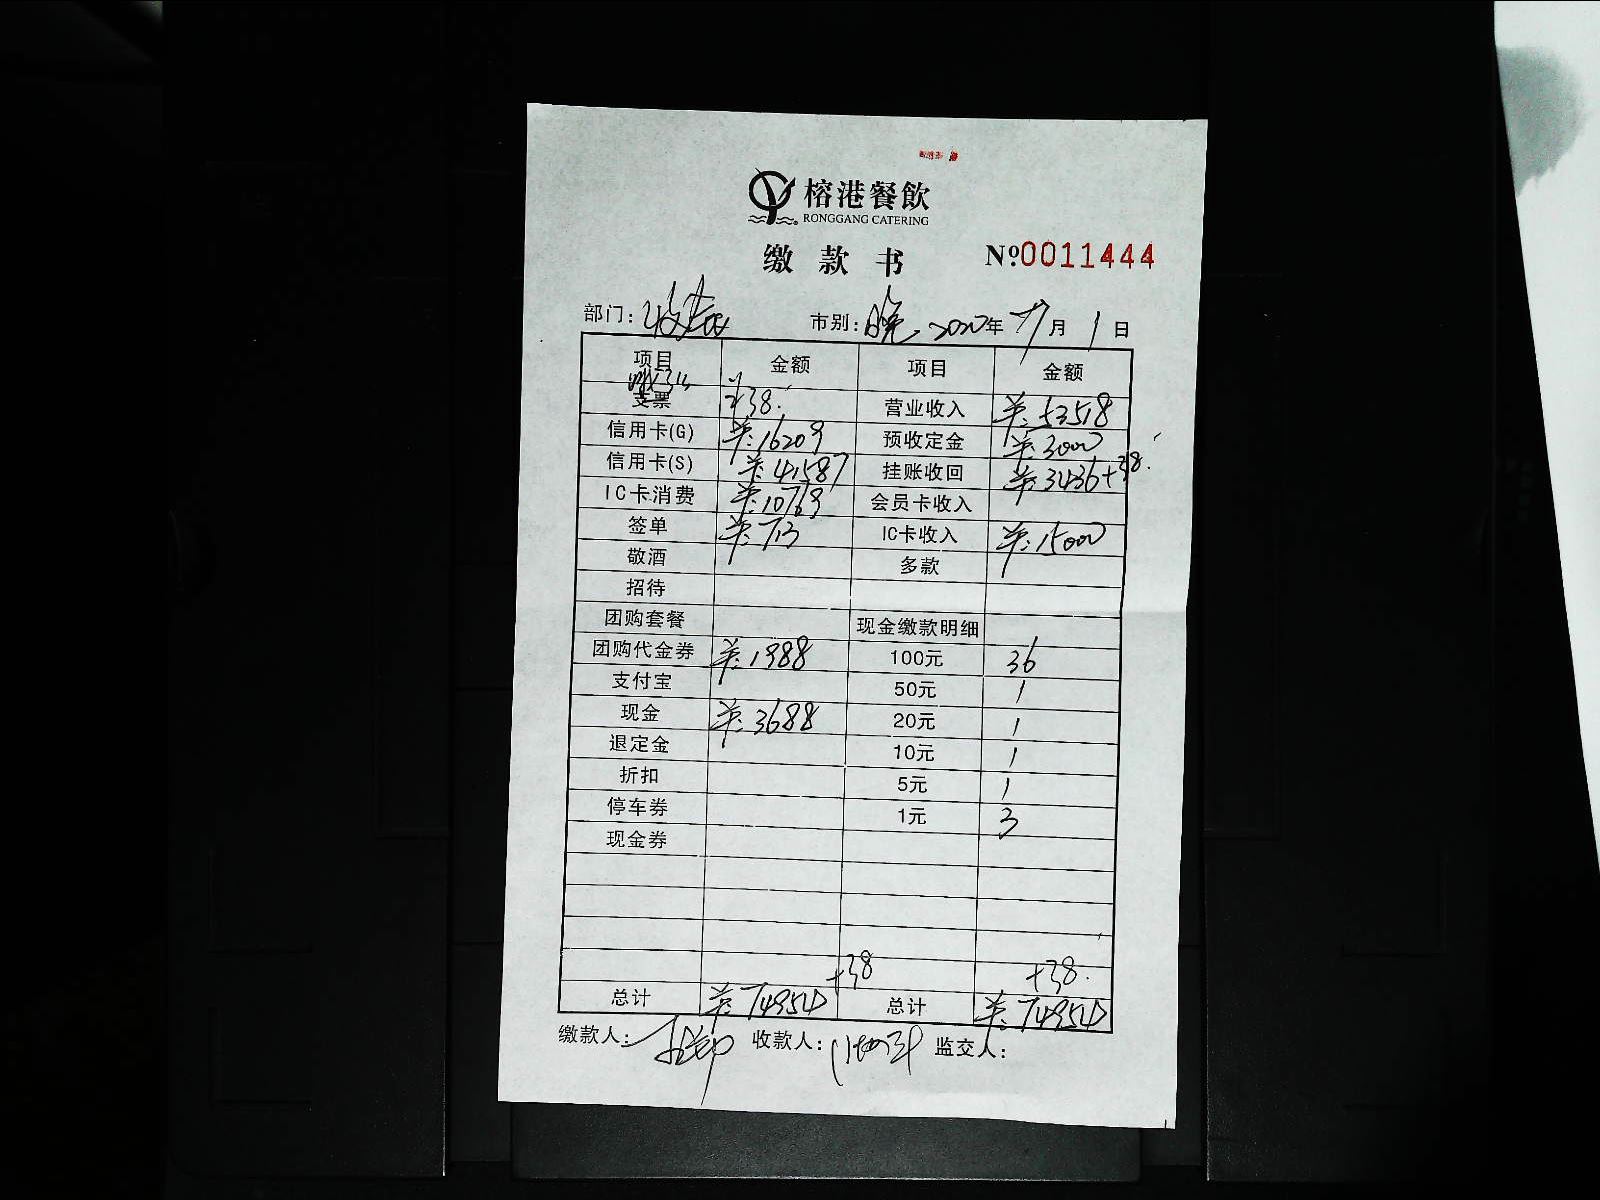 榕港餐飲
RONGGANG CATERING
缴款书 №0011444
部门: 收银 市别: 晚 2020年 7月 1日
项目 金额 项目 金额
支票 ¥38. 营业收入 ¥:53518
信用卡(G) ¥:16209 预收定金 ¥:3000
信用卡(S) ¥:41587 挂账收回 ¥:3436+38.
IC卡消费 ¥:10769 会员卡收入
签单 ¥:713 IC卡收入 ¥:15000
敬酒 多款
招待
团购套餐 现金缴款明细
团购代金券 ¥:1988 100元 36
支付宝 50元 1
现金 ¥:3688 20元 1
退定金 10元 1
折扣 5元 1
停车券 1元 3
现金券
+38 +38.
总计 ¥:74954 总计 ¥:74954
缴款人: 收款人: 监交人: